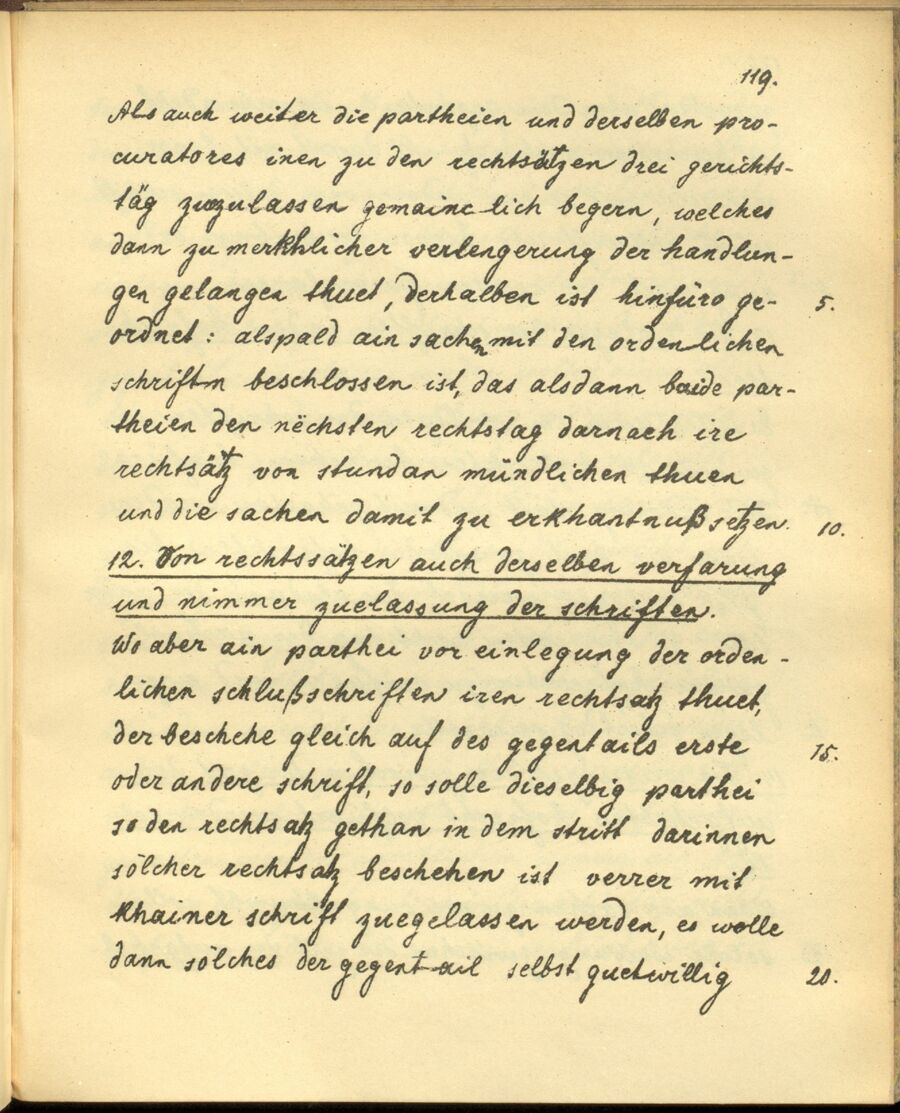 119.
Als auch weiter die partheien und derselben pro-
curatores inen zu den rechtsätzen drei gerichts-
täg zuzulassen gemainclich begern, welches
dann zu merkhlicher verlengerung der handlun-
gen gelangen thuet, derhalben ist hinfüro ge- 5.
ordnet: alspald ain sachen mit den ordenlichen
schriftn beschlossen ist, das alsdann baide par-
theien den nëchsten rechtstag darnach ire
rechtsätz von stundan mündlichen thuen
und die sachen damit zu erkhantnuß setzen. 10.
12. Von rechtssätzen auch derselben verfarung
und nimmer zuelassung der schriften.
Wo aber ain parthei vor einlegung der orden-
lichen schlußschriften iren rechtsatz thuet,
der beschehe gleich auf des gegentails erste 15.
oder andere schrift, so solle dieselbig parthei
so den rechtsatz gethan in dem stritt darinnen
sölcher rechtsatz beschehen ist verrer mit
khainer schrift zuegelassen werden, es wolle
dann sölches der gegentail selbst guetwillig 20.